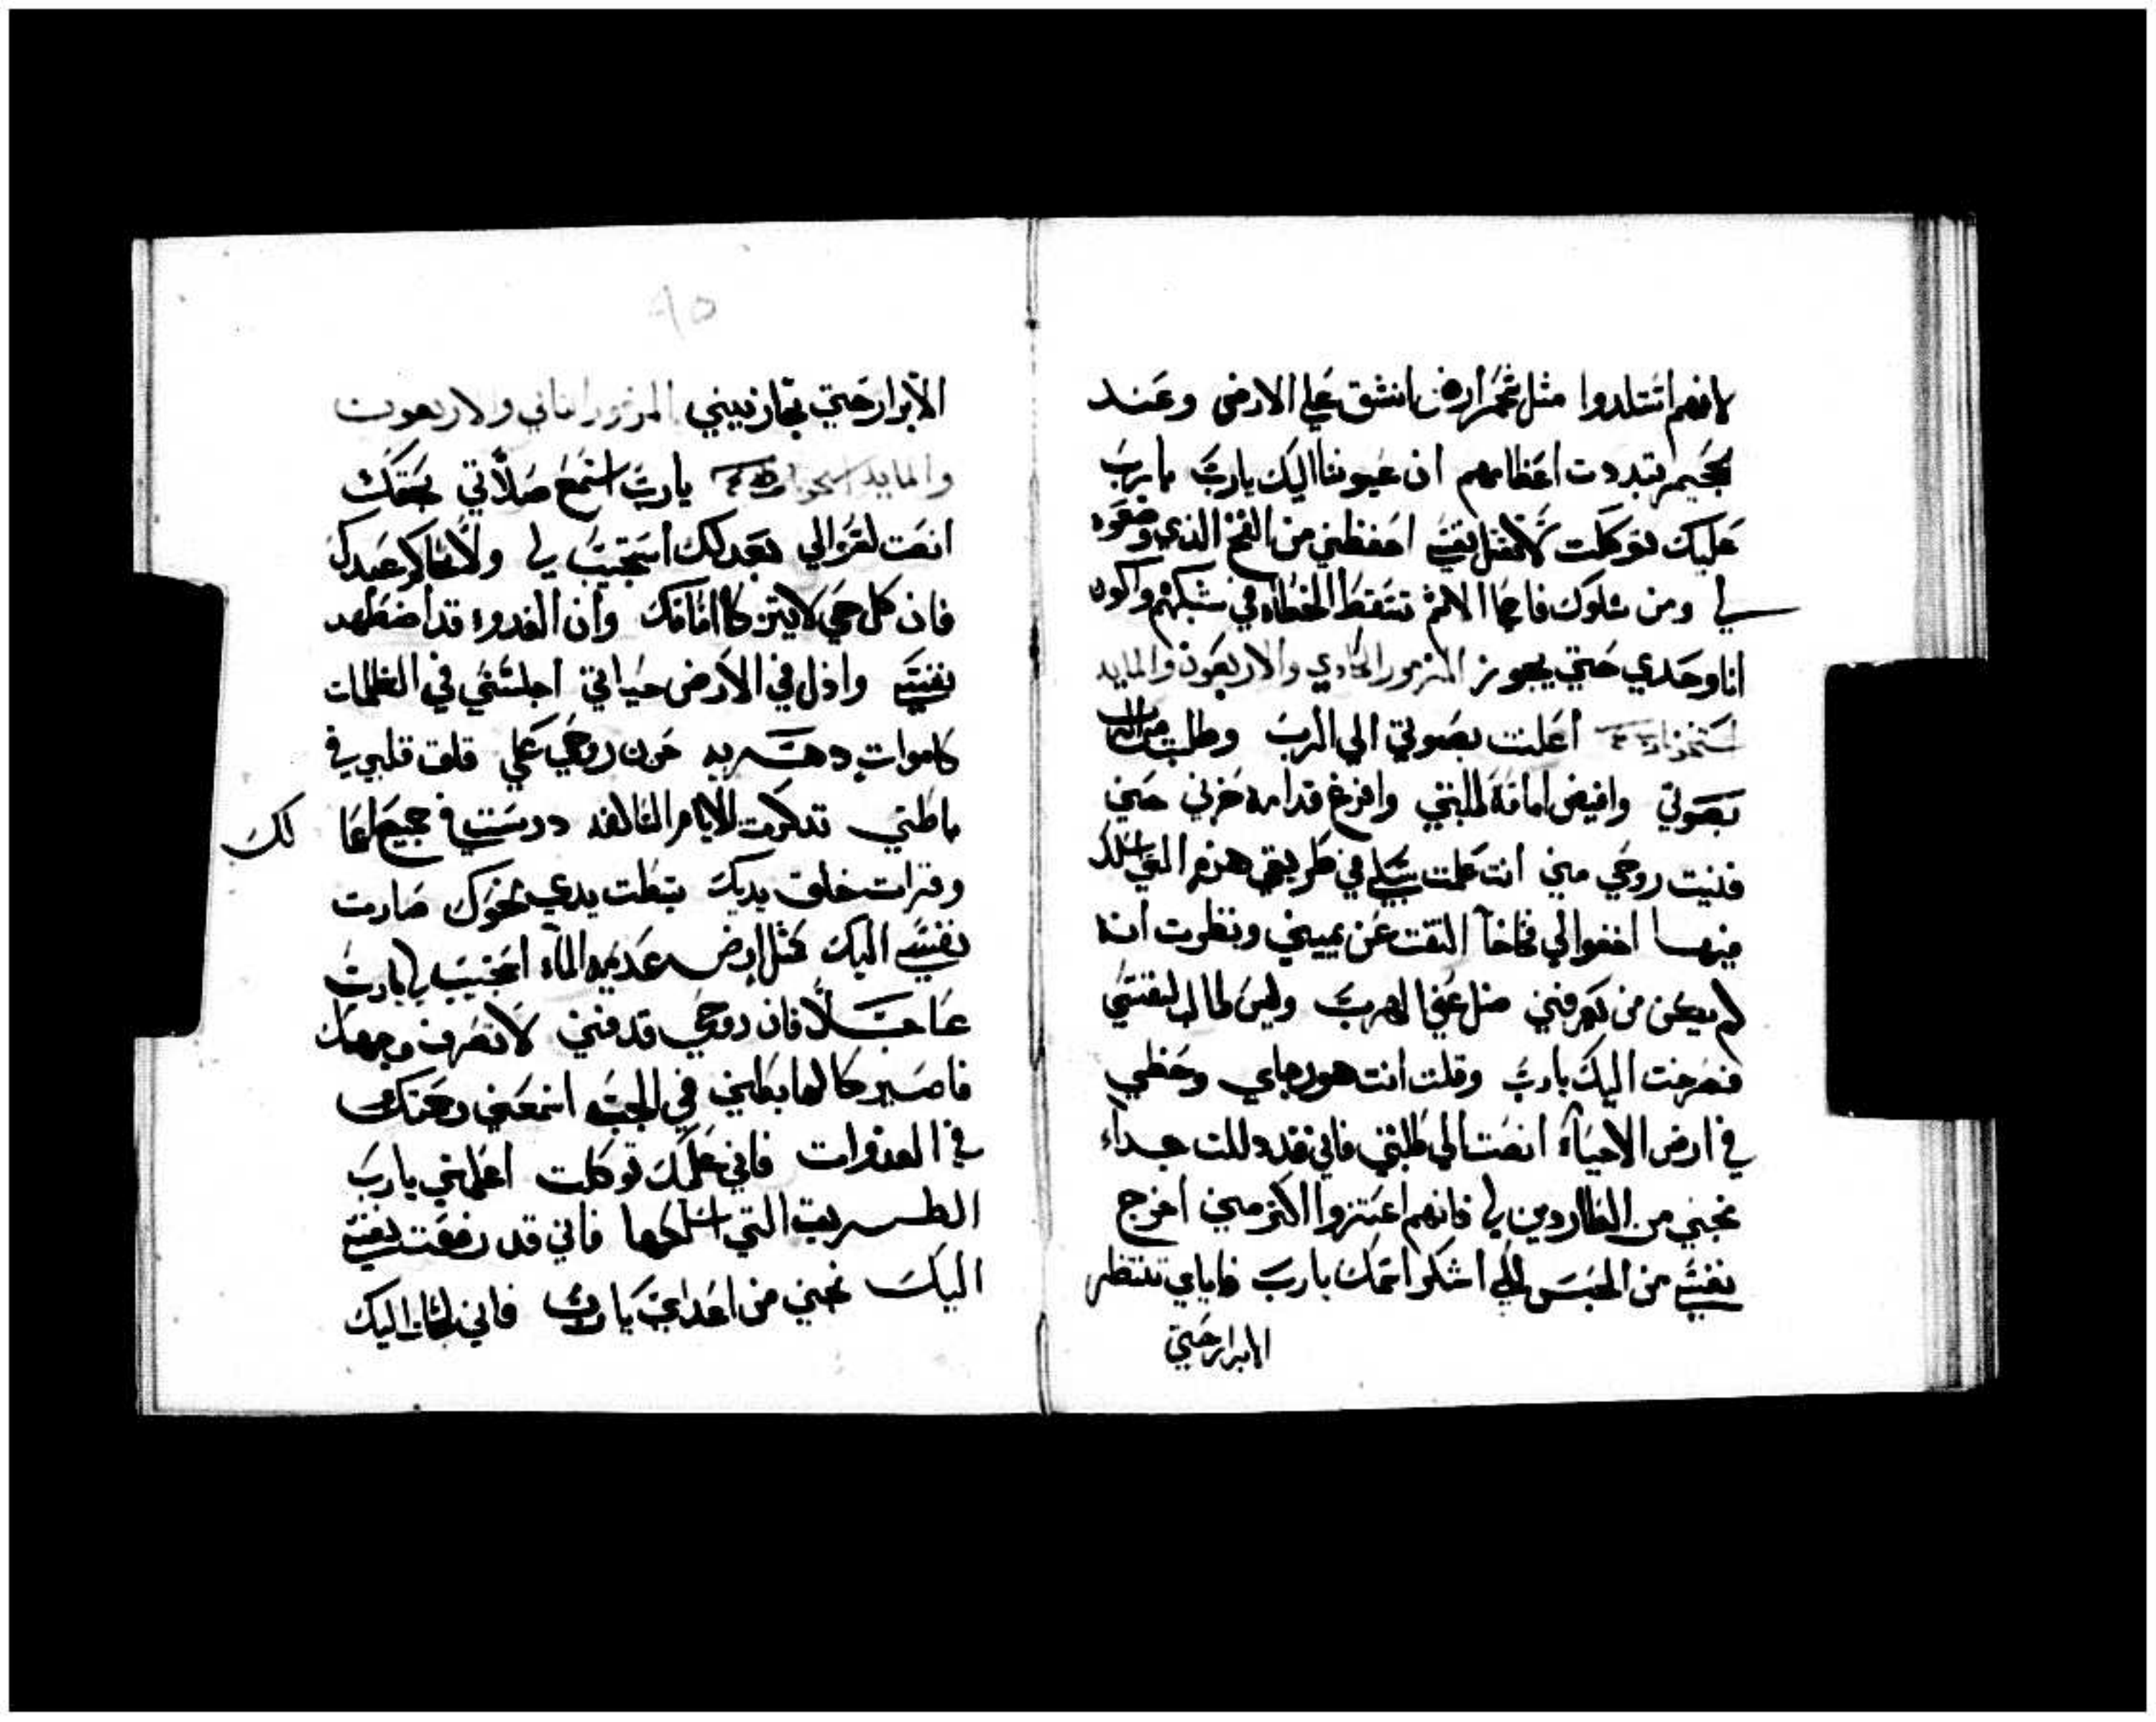 لانهم اتتلدوا مثل شحم ارض انشق علي الارض وعند
الجحيم تبددت اعظامهم ان عيوننا اليك يارب يارب
عليك توكلت لا تقتل نفسي احفظني من الفخ الذي وضعوه
لي ومن شكوك فاعلي الاثم تسقط الخطاه في شبكتهم واكون
انا وحدي حتي يجوز المزمور الحادي والاربعون والمايه
اعلنت بصوتي الي الرب وطلبت من الرب
بصوتي وافيض امامه طلبتي وافرغ قدامه حزني حين
فنيت روحي مني انت علمت سبلي في طريقي هذه التي اسلك
فيها اخفوا لي فخاخاً التفت عن يميني ونظرت انه
لم يكن من يعرفني ضل عني الهرب وليس طالب لنفسي
فصرخت اليك يارب وقلت انت هو رجاي وحظي
في ارض الاحياء انصت الي طلبتي فاني قد دللت جداً
نجني من الطاردين لي فانهم اعتزوا اكثر مني اخرج
نفسي من الحبس لكي اشكر اسمك يارب فاياي تنتظر
الابرار حتي
٩٥
الابرار حتي تجازييني المزمور الثاني والاربعون
والمايه يارب استمع صلاتي بحقك
انصت لتضرعي بعدلك استجيب لي ولا تحاكم عبدك
فان كل حي لا يتزكا امامك وان العدو قد اضطهد
نفسي واذل في الارض حياتي اجلسني في الظلمات
كاموات دهريه حزن روحي علي قلق قلبي في
باطني تذكرت الايام السالفه درست في جميع اعما لك
وقرات خلق يديك بسطت يدي نحوك صارت
نفسي اليك مثل ارض عديمه الماء استجيب لي يارب
عاجلاً فان روحي قد فني لا تصرف وجهك
فاصير كالهابطين في الجب اسمعني رحمتك
في الغدوات فاني عليك توكلت اعلمني يارب
الطريق التي اسلكها فاني قد رفعت نفسي
اليك نجني من اعداي يارب فاني لجات اليك